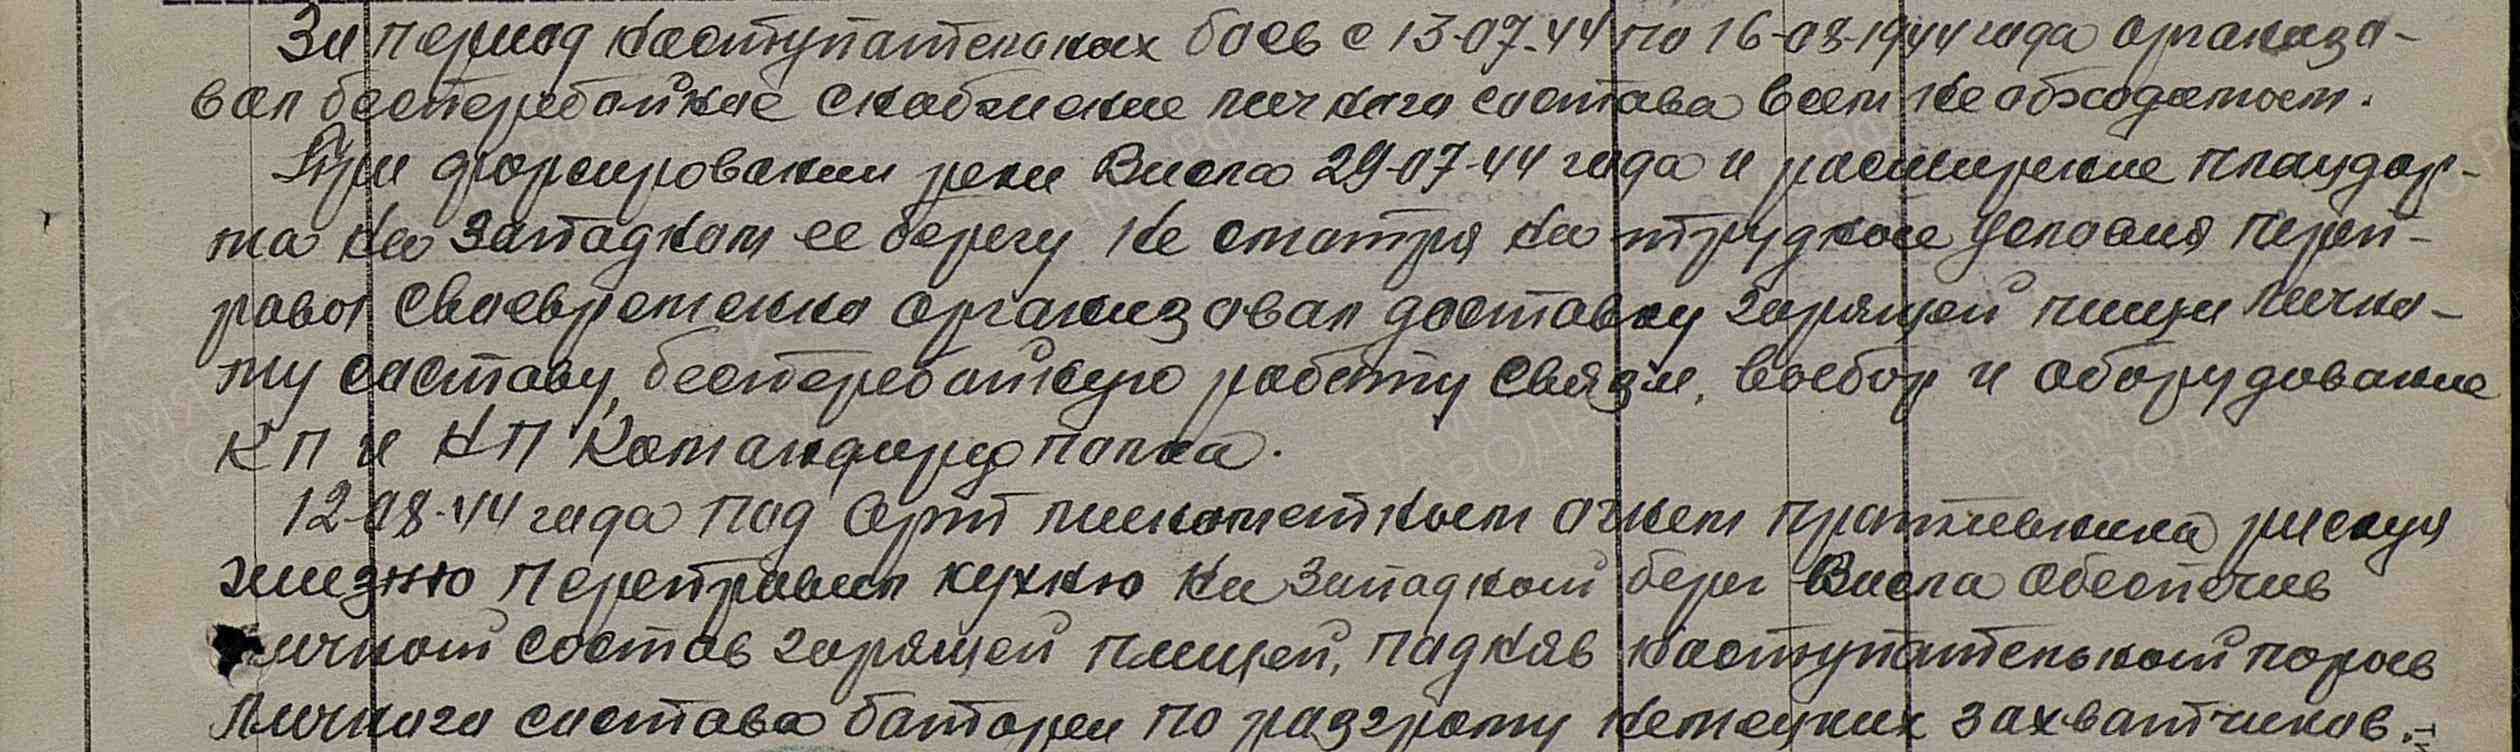 За период наступательных боев с 13-07-44 по 16-08-1944 года организо-
вал бесперебойное снабжение личного состава всем необходимом.
При форсировании реки Висла 29-07-44 года и расширение плацдар-
ма на Западном ее берегу не смотря на трудное условия переп-
равы своевременно организовал доставку горящей пищи лично-
му составу, бесперебойную работу связи, выбор и оборудование
КП и НП Командира полка.
12-08-44 года под Арт минометным огнем противника рискуя
жизнью переправил кухню на Западной берег Висла обеспечив
личной состав горящей пищей, подняв наступательной порыв
Личного состава батареи по разгрому немецких захватчиков.-